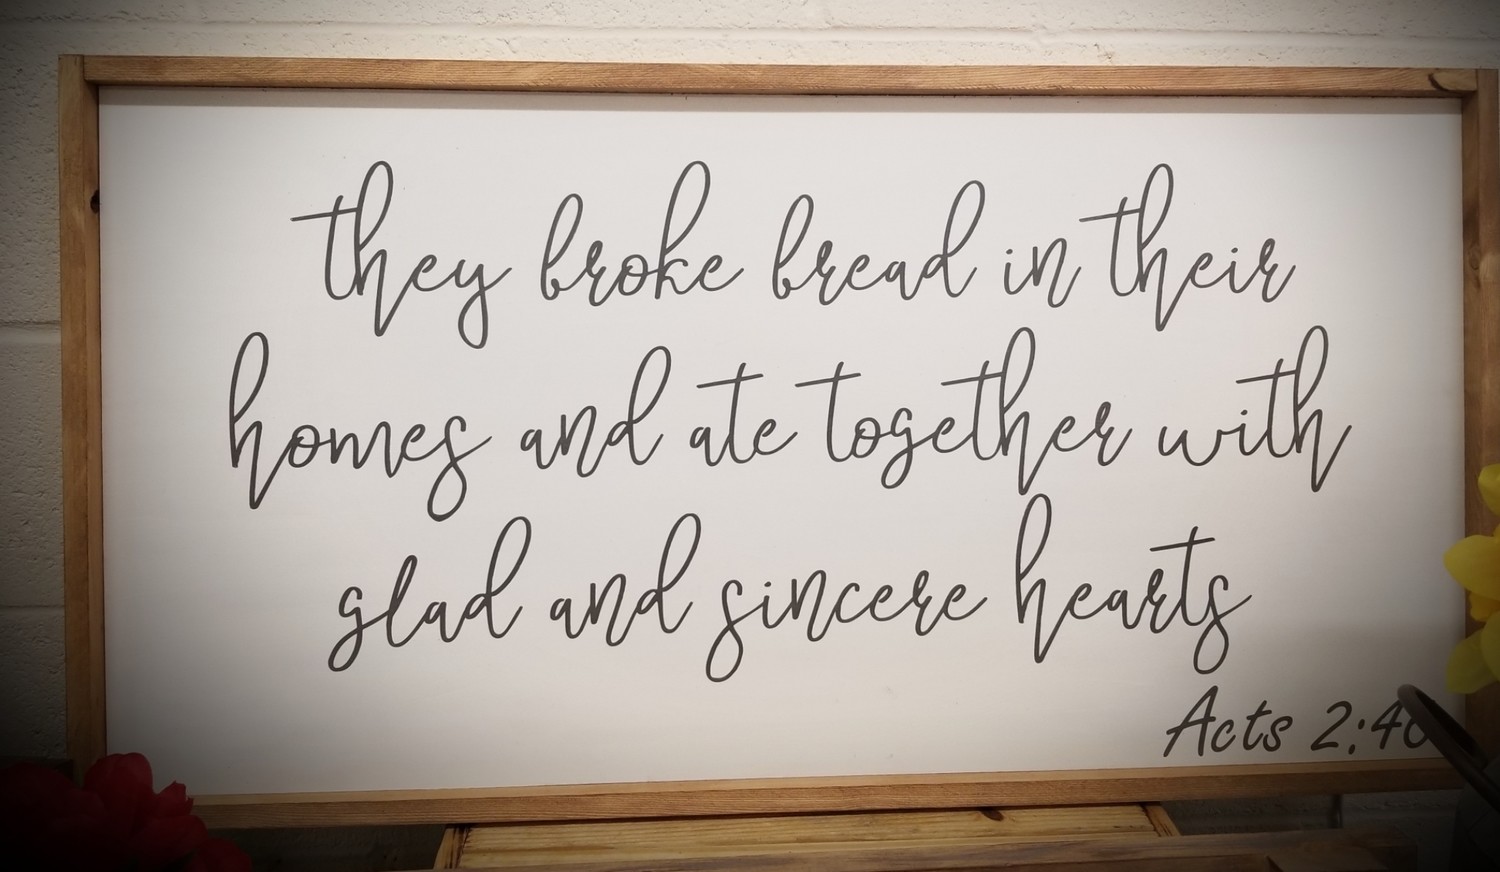 they broke bread in their
homes and ate together with
glad and sincere hearts
Acts 2:46